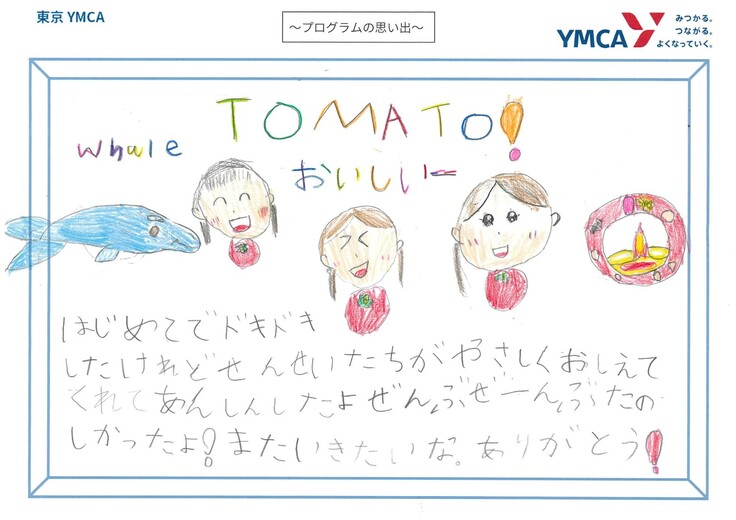 東京 YMCA
～プログラムの思い出～
YMCA
みつかる。
つながる。
よくなっていく。
TOMATO!
whale
おいしいー
はじめてでドキドキ
したけれどせんせいたちがやさしくおしえて
くれてあんしんしたよぜんぶぜーんぶたの
しかったよ!またいきたいな。ありがとう!